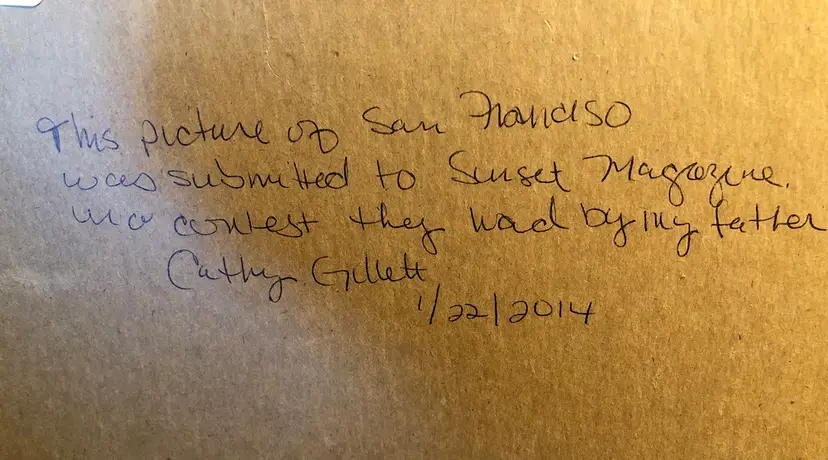 This picture of San Franciso
was submitted to Sunset Magazine.
in a contest they had by my father
Cathy Gillett
1/22/2014